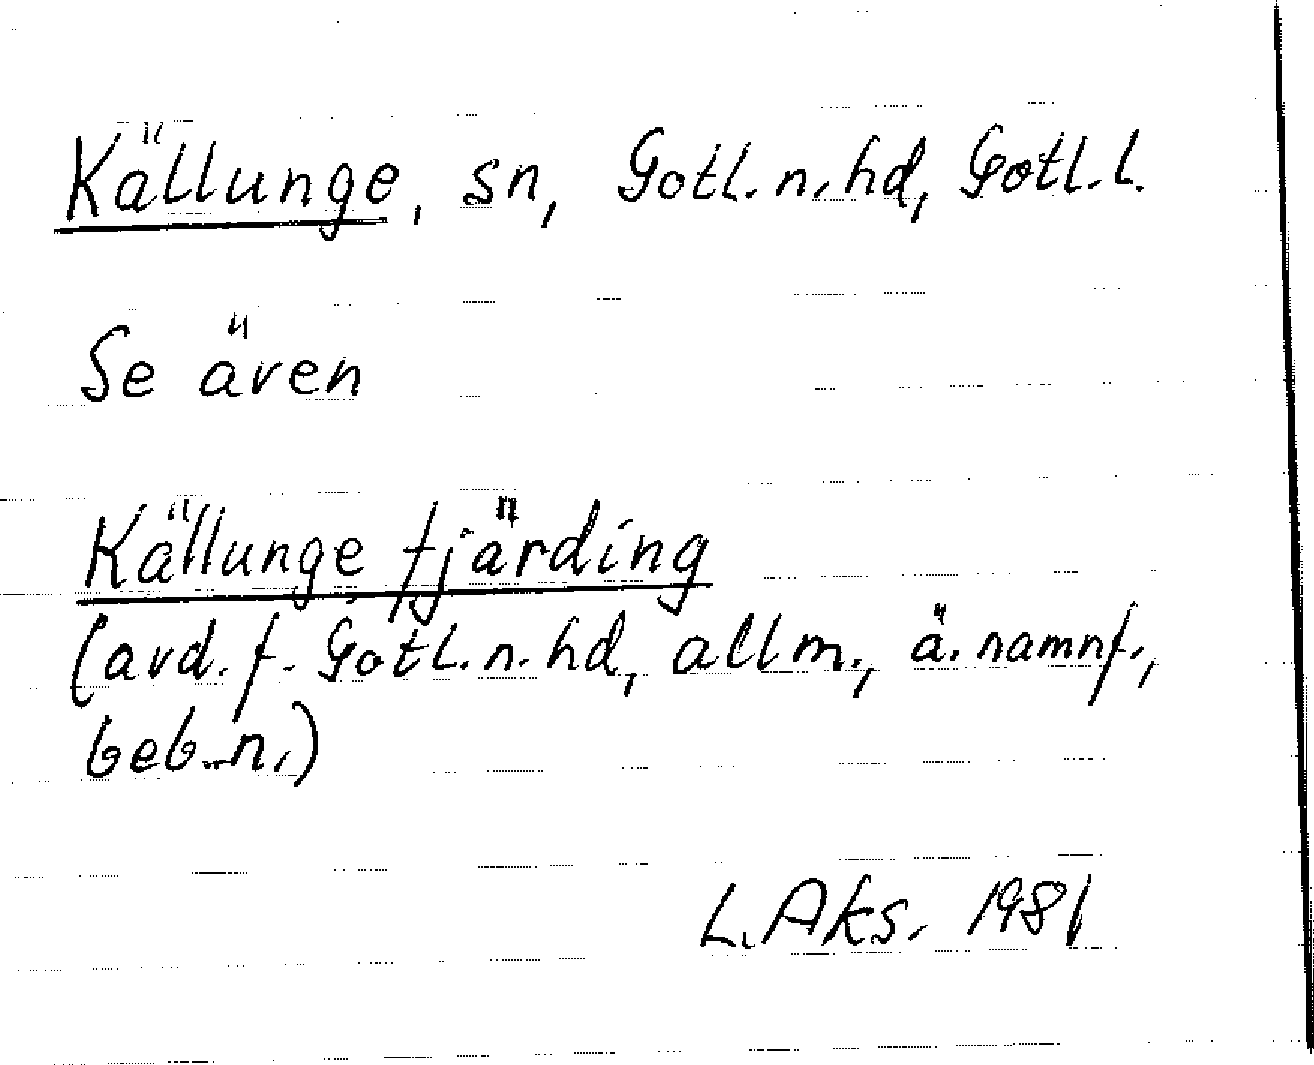 Källunge, sn, Gotl. n. hd, Gotl. l.
Se även
Källunge fjärding
(avd. f. Gotl. n. hd, allm., ä. namnf.,
beb.n.)
L. Aks. 1981